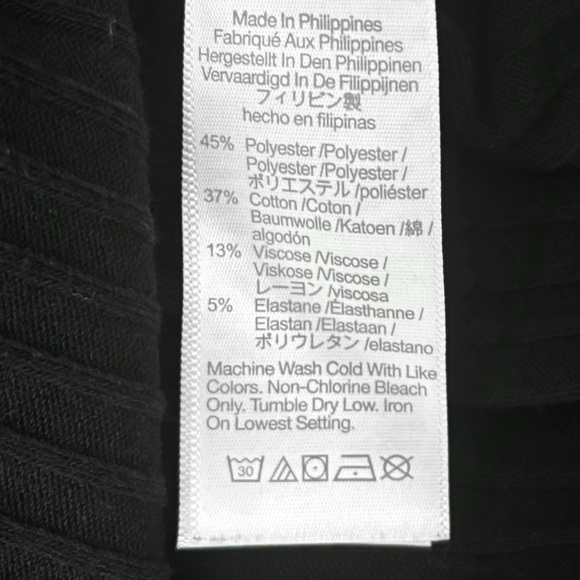 Made In Philippines
Fabriqué Aux Philippines
Hergestellt In Den Philippinen
Vervaardigd In De Filippijnen
フィリピン製
hecho en filipinas
45% Polyester /Polyester /
Polyester /Polyester /
ポリエステル /poliéster
37% Cotton /Coton /
Baumwolle /Katoen /綿 /
algodón
13% Viscose /Viscose /
Viskose /Viscose /
レーヨン /viscosa
5% Elastane /Élasthanne /
Elastan /Elastaan /
ポリウレタン /elastano
Machine Wash Cold With Like
Colors. Non-Chlorine Bleach
Only. Tumble Dry Low. Iron
On Lowest Setting.
30